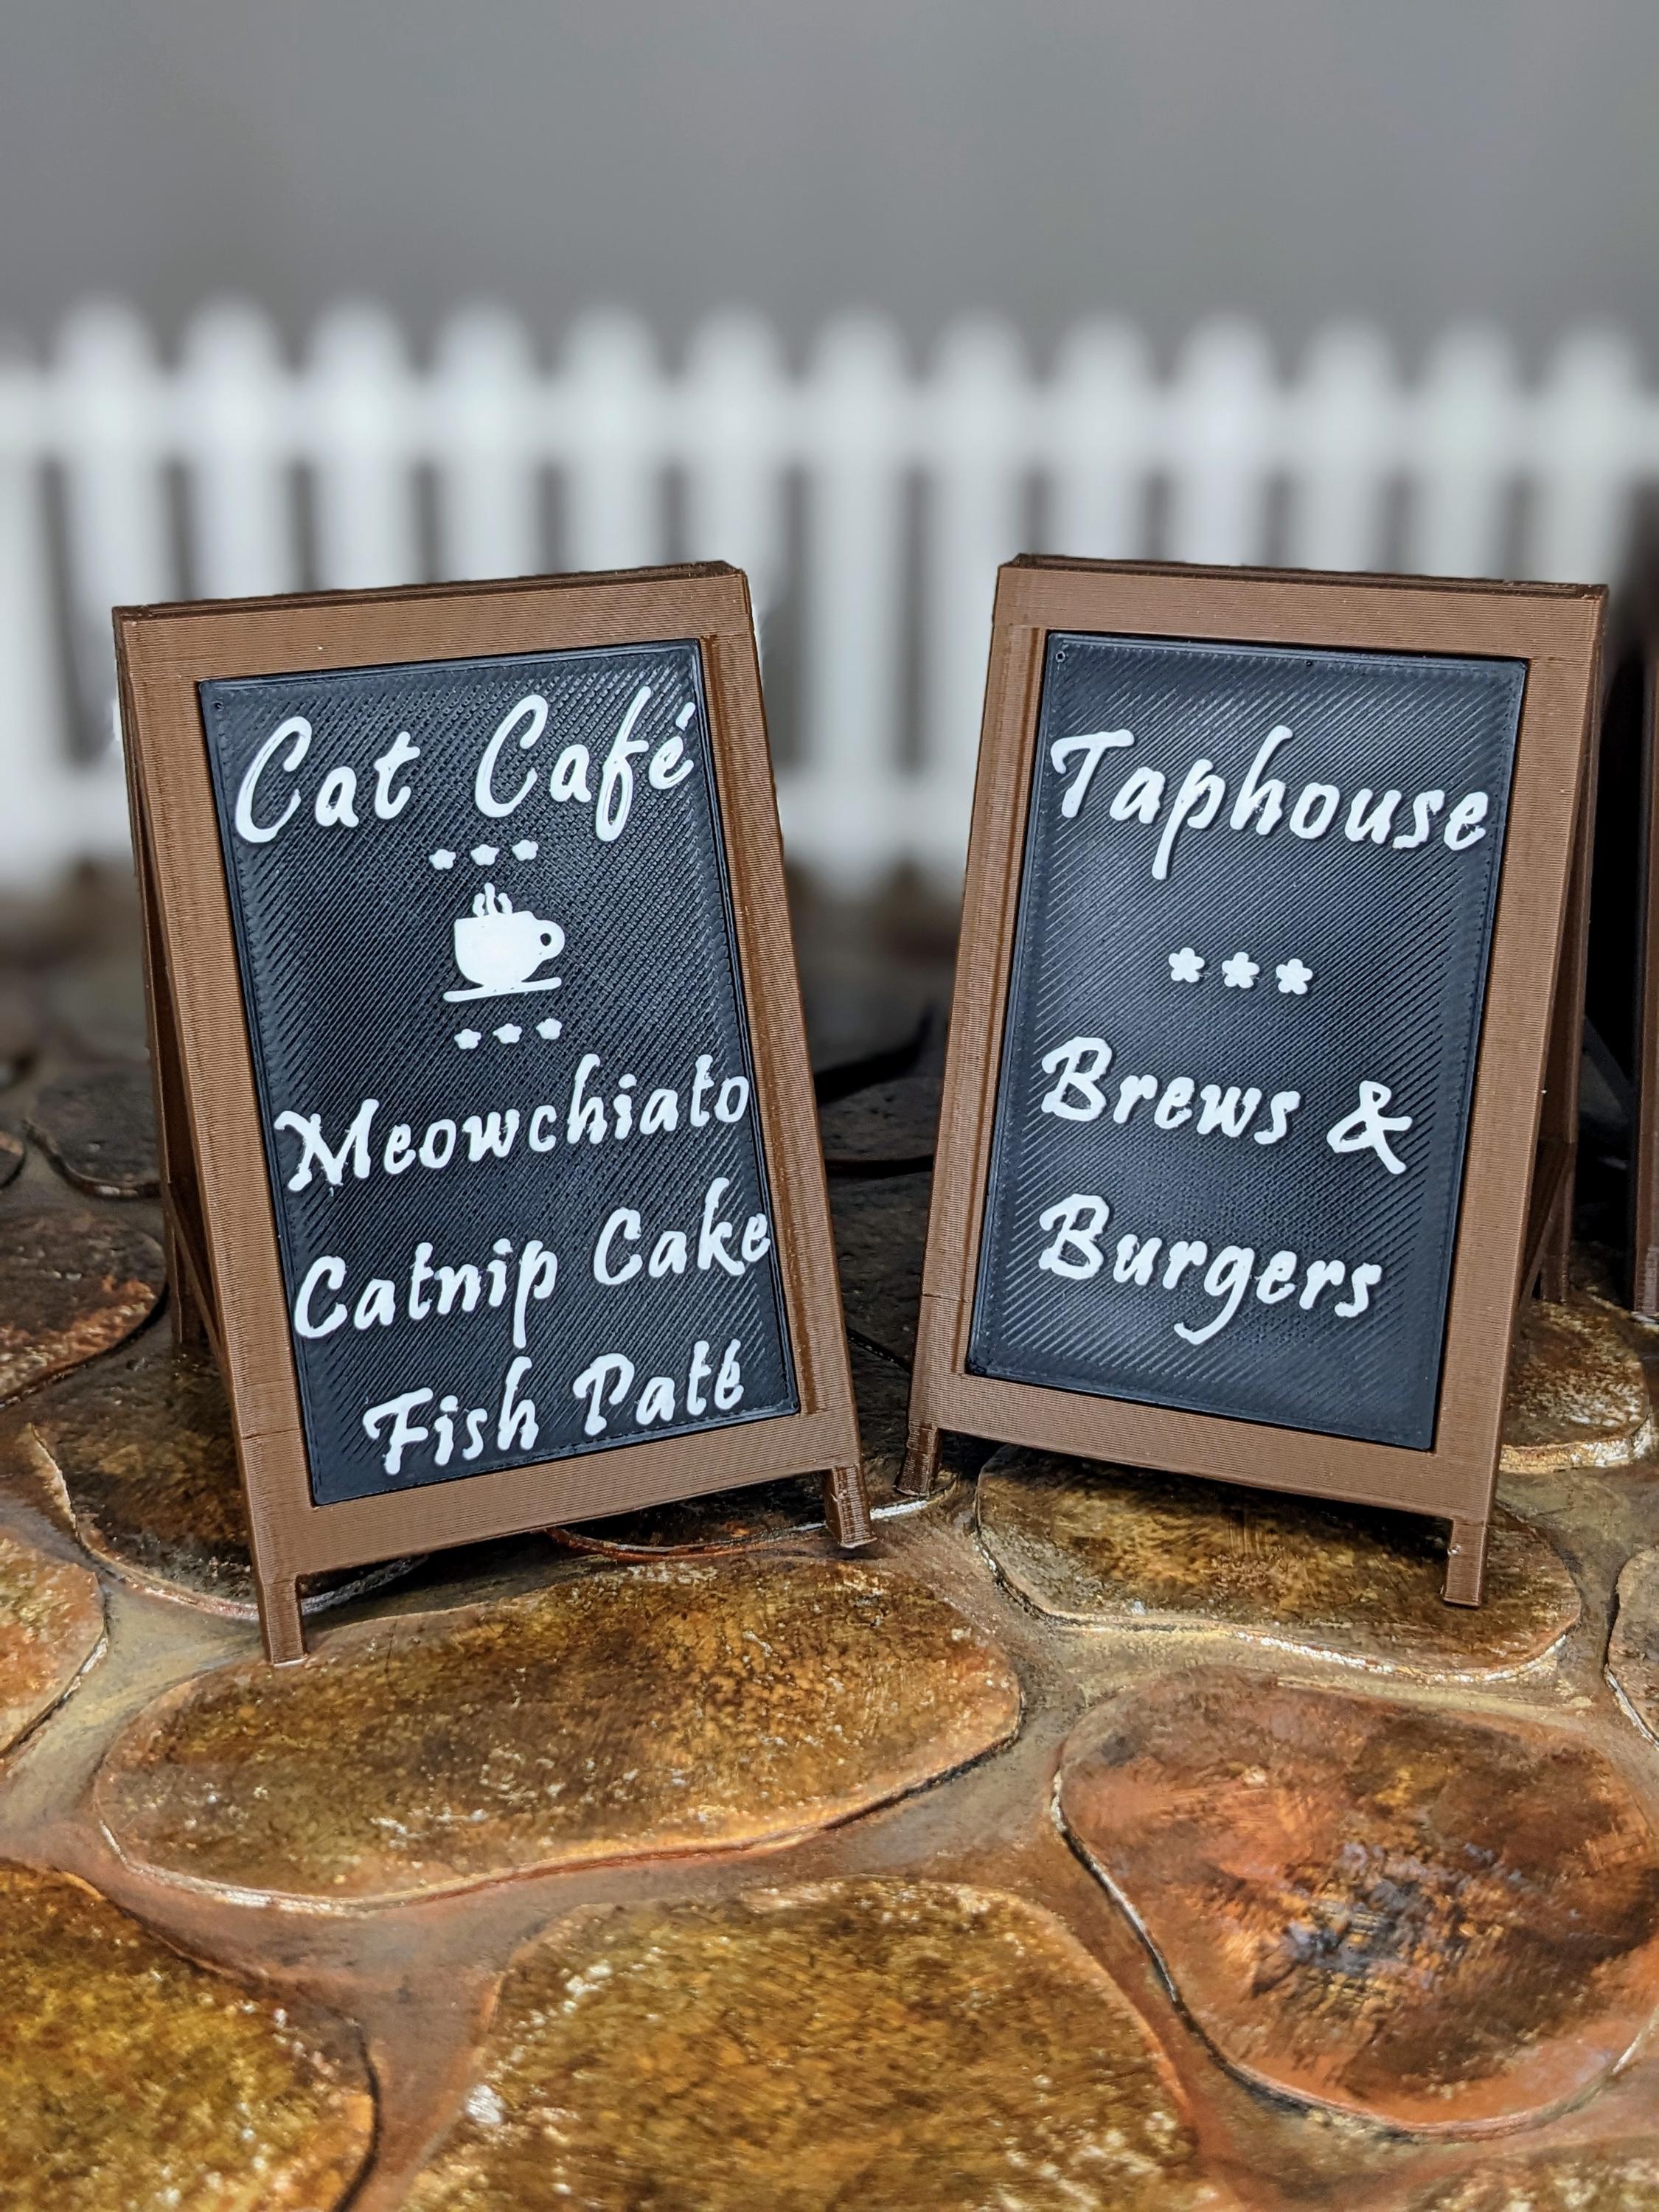 Cat Café
Meowchiato
Catnip Cake
Fish Paté
Taphouse
Brews &
Burgers